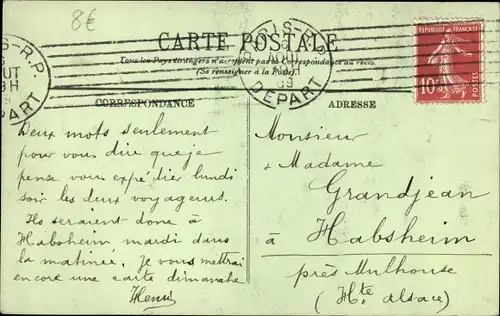 8€
PARIS-R.P.
AOUT
09
DEPART
CARTE POSTALE
Tous les Pays étrangers n'acceptent pas la Correspondance au recto
(Se renseigner à la Poste)
CORRESPONDANCE
ADRESSE
REPUBLIQUE FRANÇAISE
10c
Deux mots seulement
pour vous dire que je
pense vous expédier lundi
soir les deux voyageurs.
Ils seraient donc à
Habsheim mardi dans
la matinée. Je vous mettrai
encore une carte dimanche
Henri
Monsieur
& Madame
Grandjean
à Habsheim
près Mulhouse
(Hte alsace)